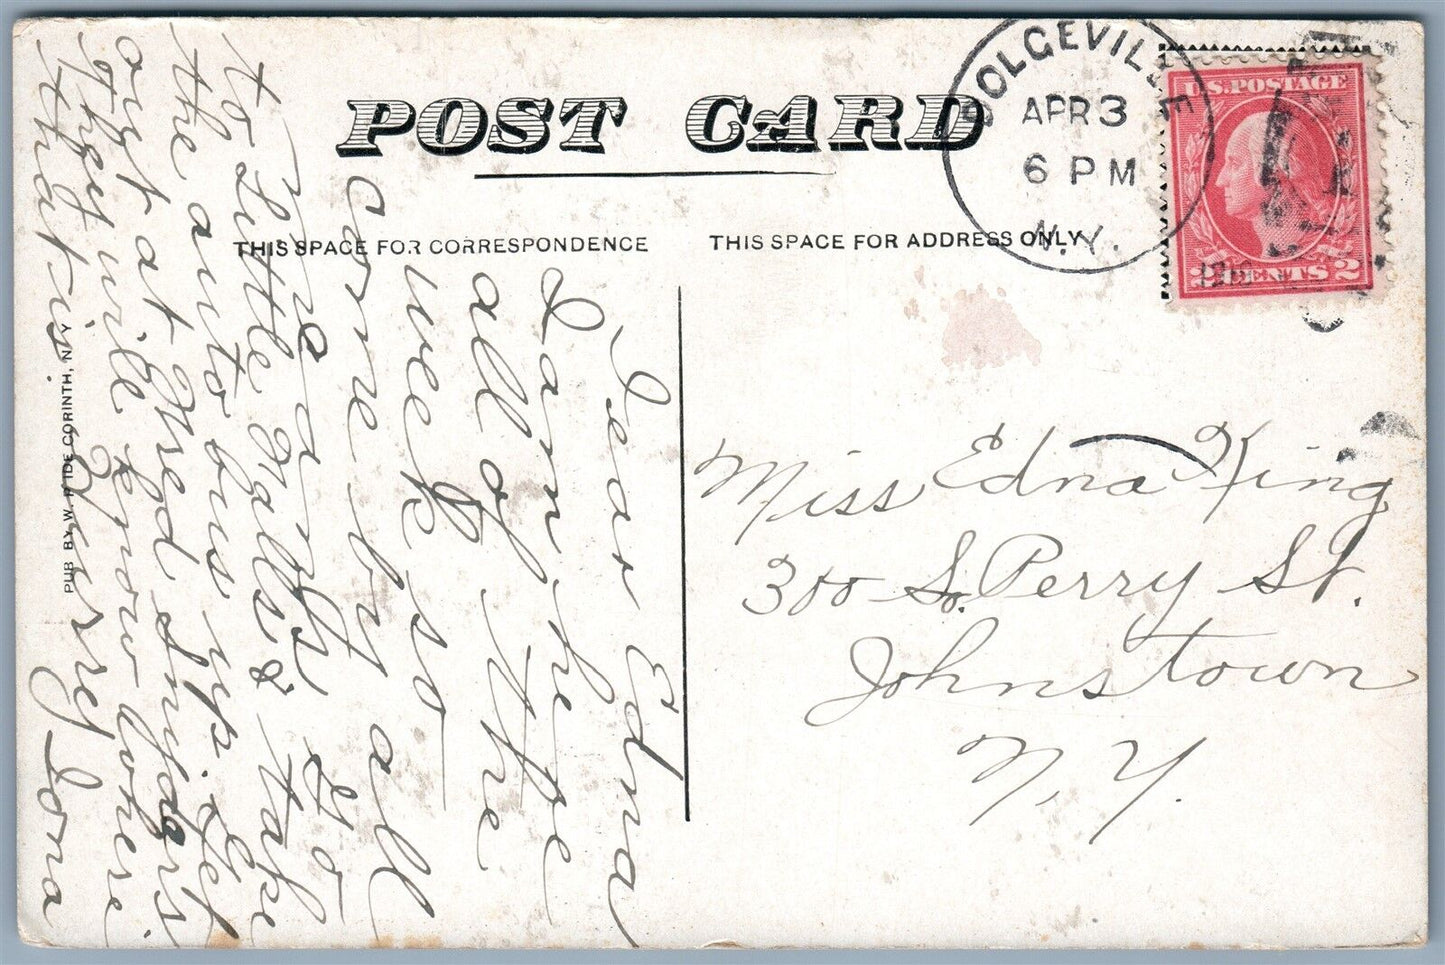 POST CARD
THIS SPACE FOR CORRESPONDENCE
THIS SPACE FOR ADDRESS ONLY
DOLGEVILLE
APR 3
6 PM
N.Y.
U.S. POSTAGE
2 CENTS 2
Miss Edna King
300 S. Perry St.
Johnstown
N.Y.
Dear Edna
I am here
all of the
week so
come by all
means go
to Little Falls & take
the auto bus up Get
out at Fred Smidart's
they will know where
that is Hurry Iona
PUB BY W. HIDE CORINTH, N.Y